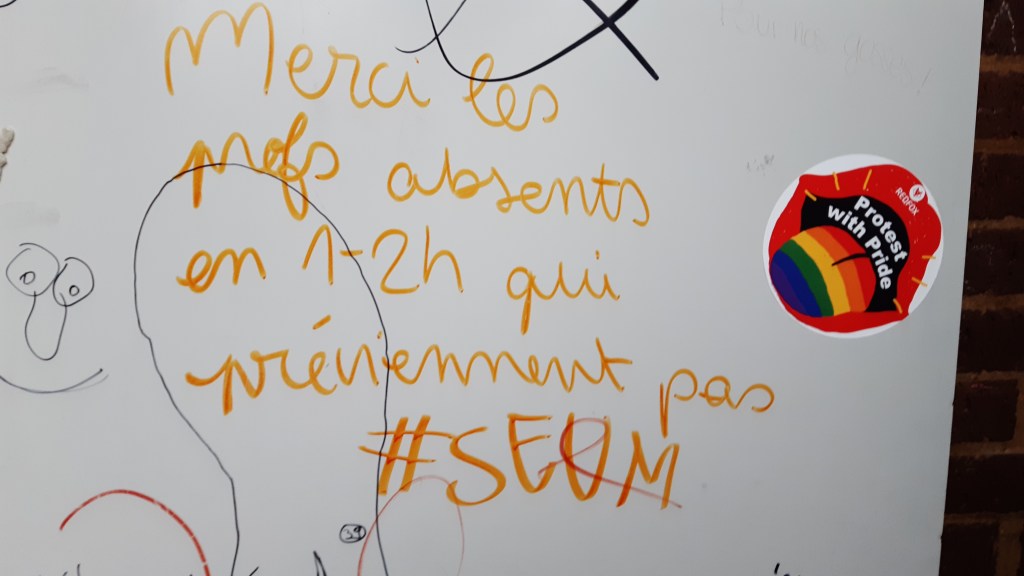 Merci les
profs absents
en 1-2h qui
préviennent pas
#SEUM
REDFOX
Protest
with Pride
39